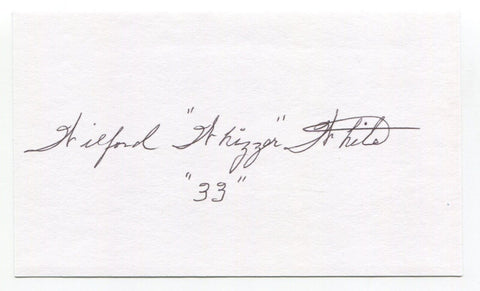 Wilford "Whizzer" White
"33"